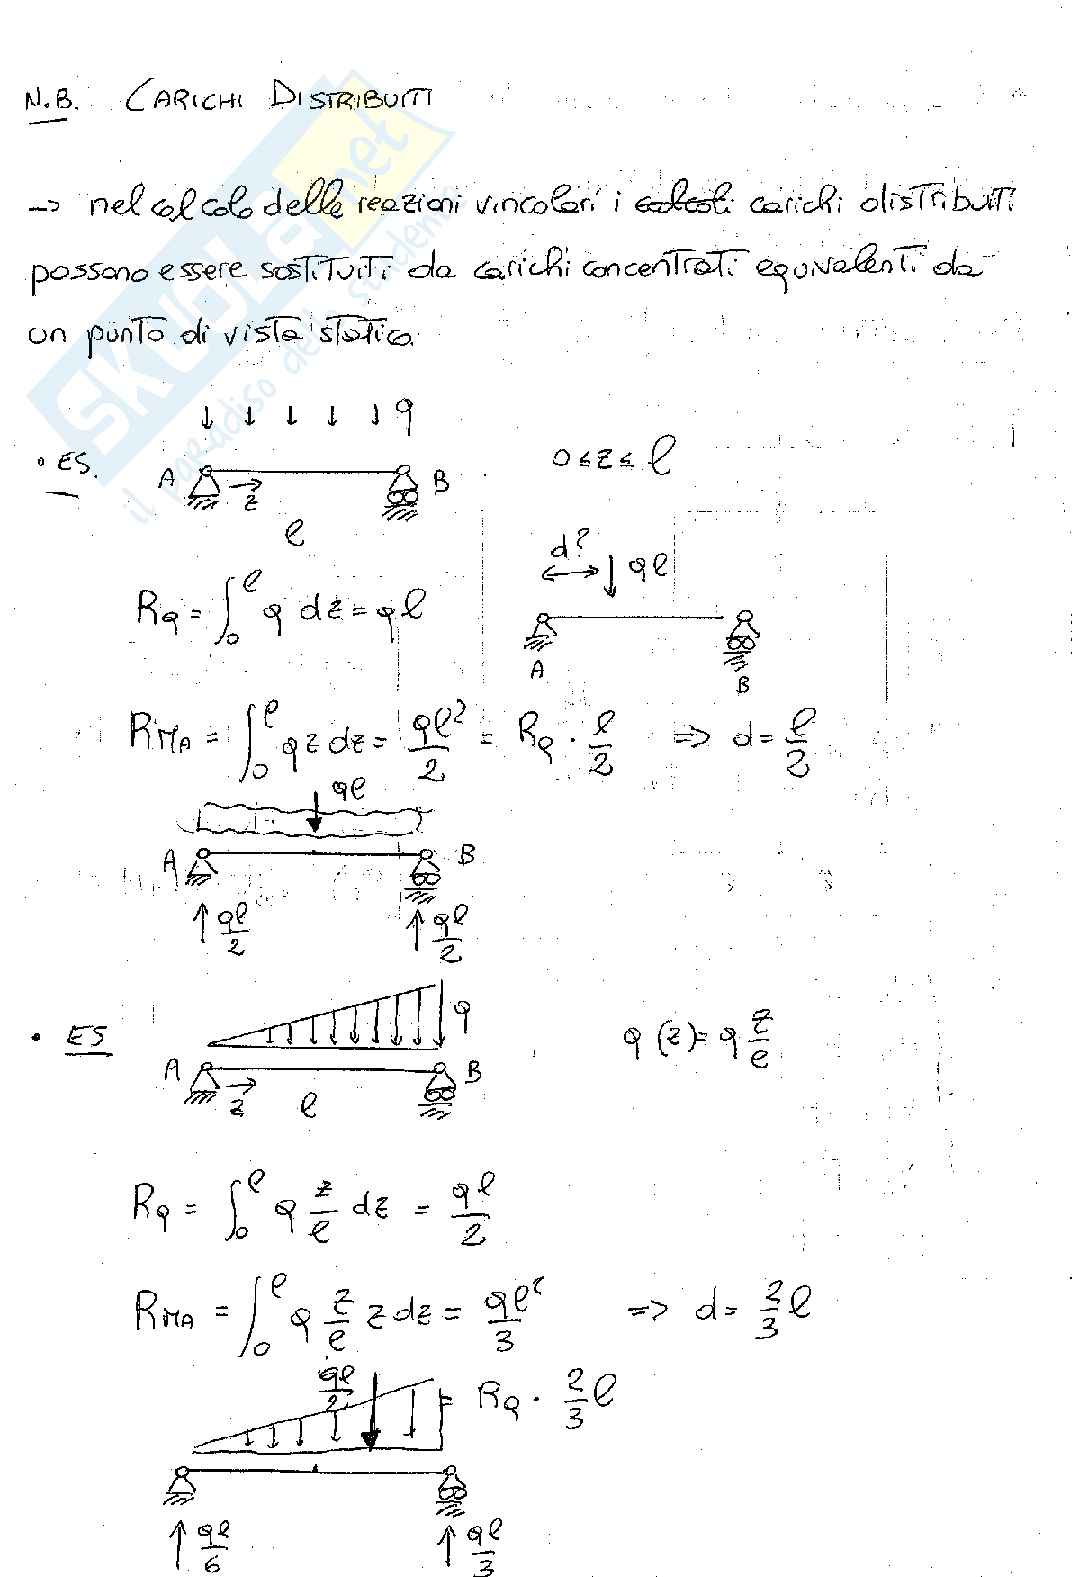 N.B. CARICHI DISTRIBUITI
→ nel calcolo delle reazioni vincolari i calcoli carichi distribuiti
possono essere sostituiti da carichi concentrati equivalenti da
un punto di vista statico.
q
• ES. A z B 0 ≤ z ≤ l
l
d? ql
R_q = ∫₀^l q dz = ql
A B
R_MA = ∫₀^l q z dz = ql²/2 = R_q · l/2 => d = l/2
ql
A B
ql/2 ql/2
q
• ES q(z) = q z/l
A z l B
R_q = ∫₀^l q z/l dz = ql/2
R_MA = ∫₀^l q z/l z dz = ql²/3 => d = 2/3 l
ql/2 = R_q · 2/3 l
ql/6 ql/3
SKUOLA.net
il paradiso dello studente